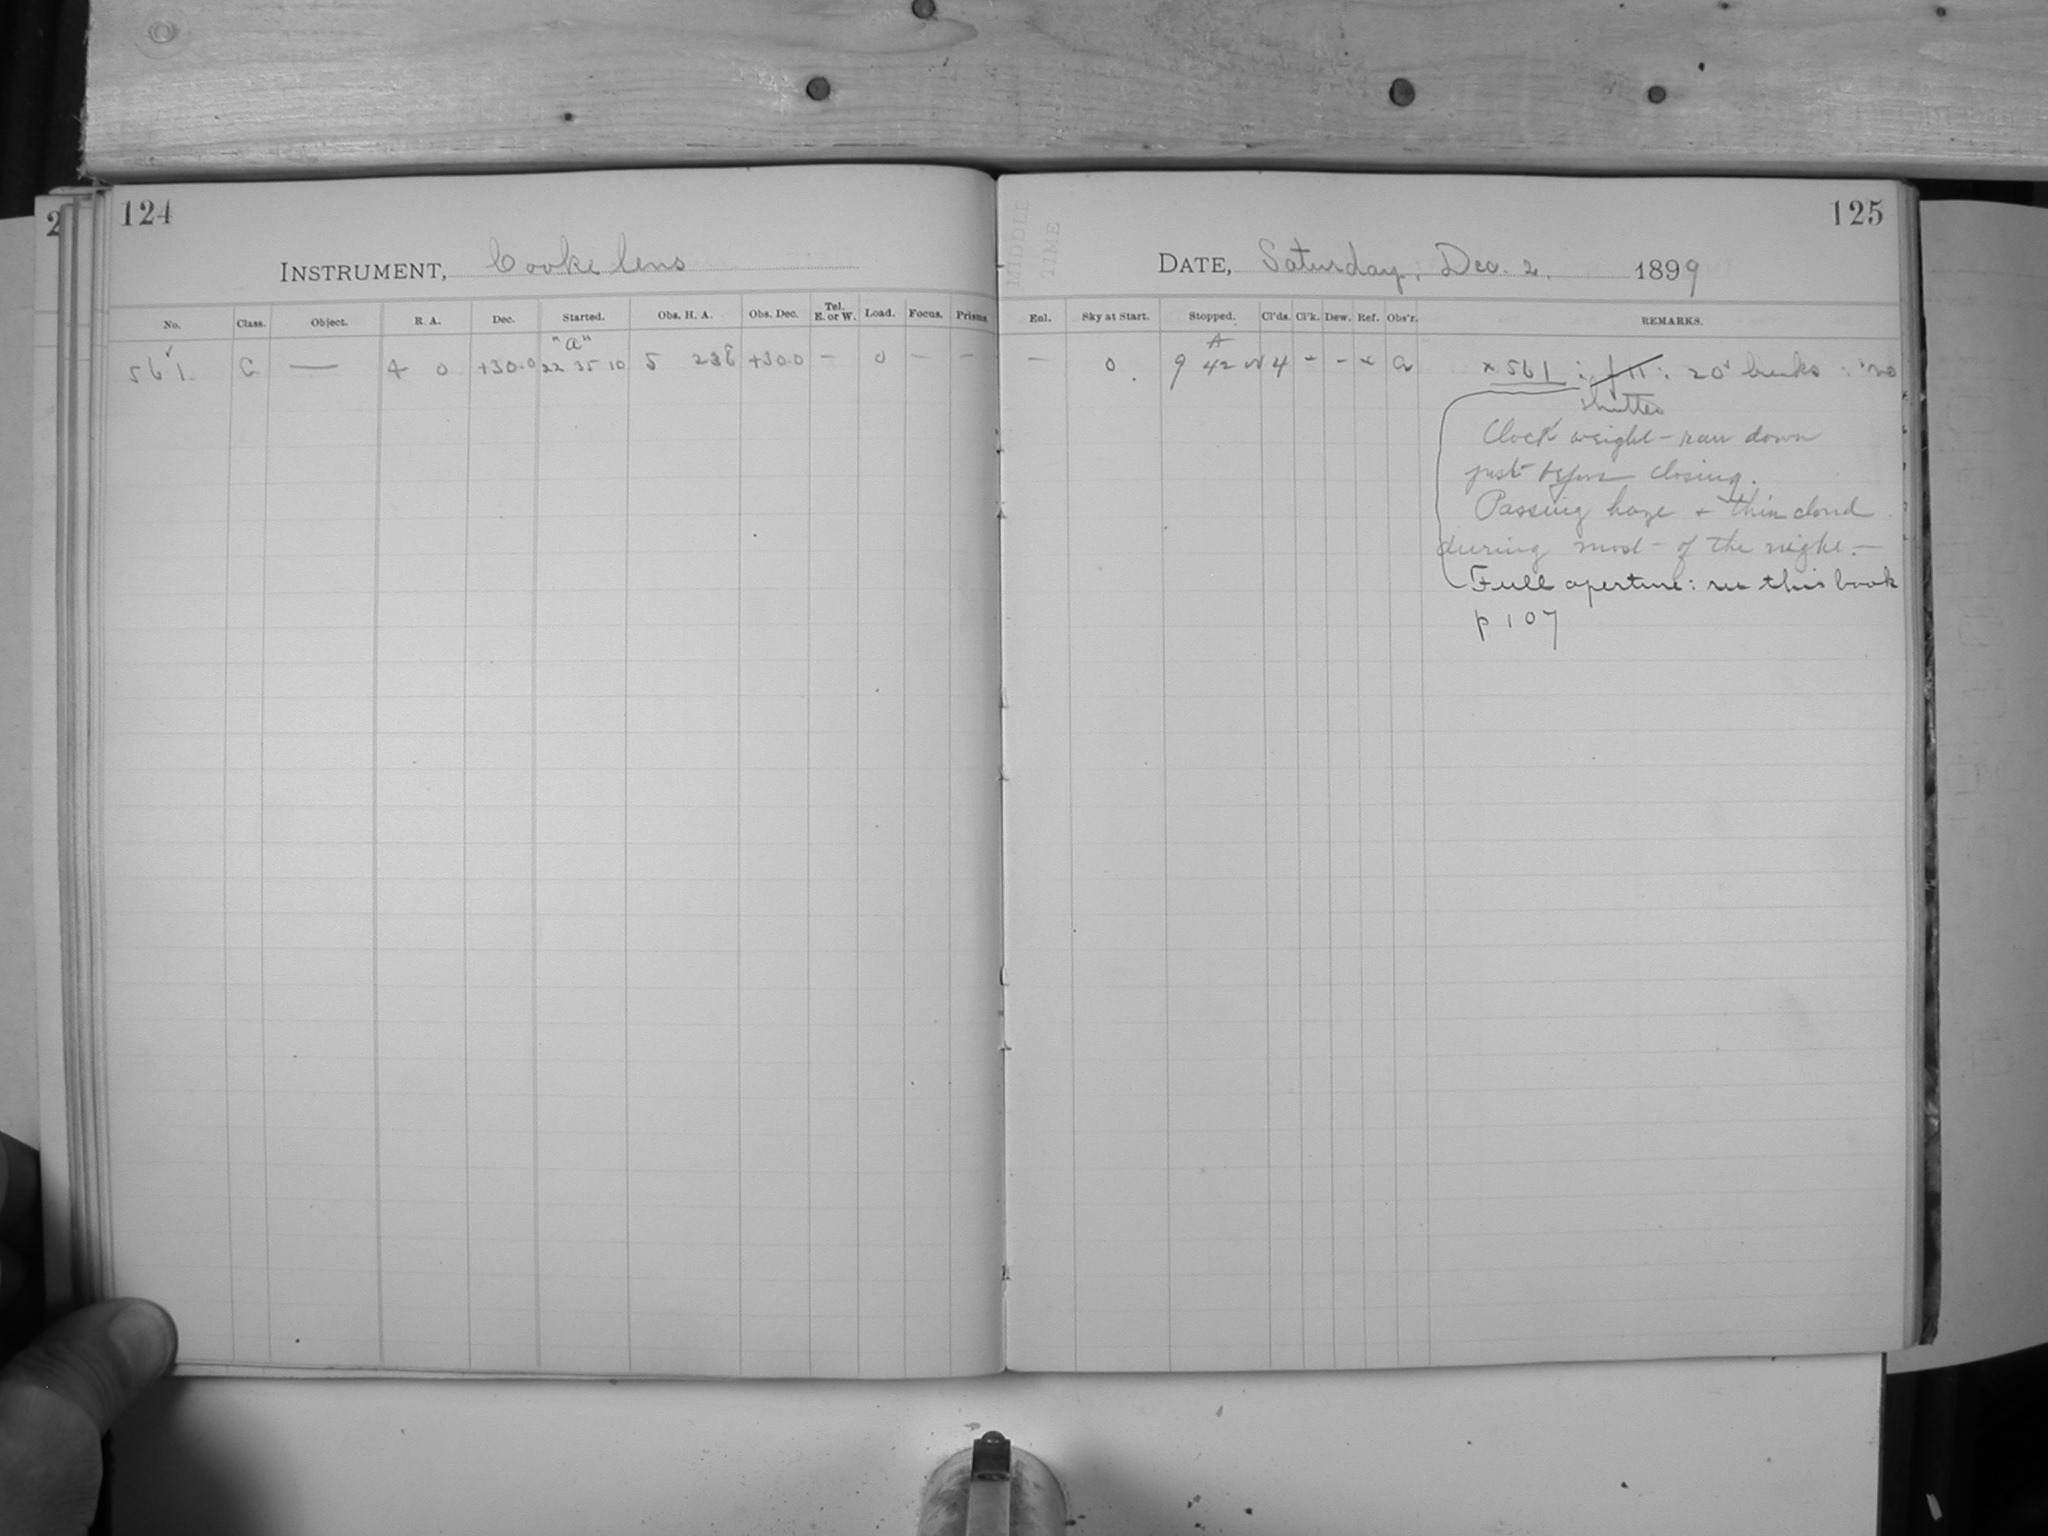 124
INSTRUMENT, Cooke lens
No. Class. Object. R. A. Dec. Started. Obs. H. A. Obs. Dec. Tel. E. or W. Load. Focus. Prisms.
"a"
561 C — 4 0 +30.0 22 35 10 5 +30.0 — 0 — —
2
MIDDLE
TIME
125
DATE, Saturday, Dec. 2. 1899
Enl. Sky at Start. Stopped. Cl'ds. Cl'k. Dew. Ref. Obs'r. REMARKS.
A
— 0 9 42 4 - - a × 561 : 20 breaks : no
shutter
Clock weight - ran down
just before closing.
Passing haze + thin cloud
during most of the night. —
Full aperture: see this book
p 107